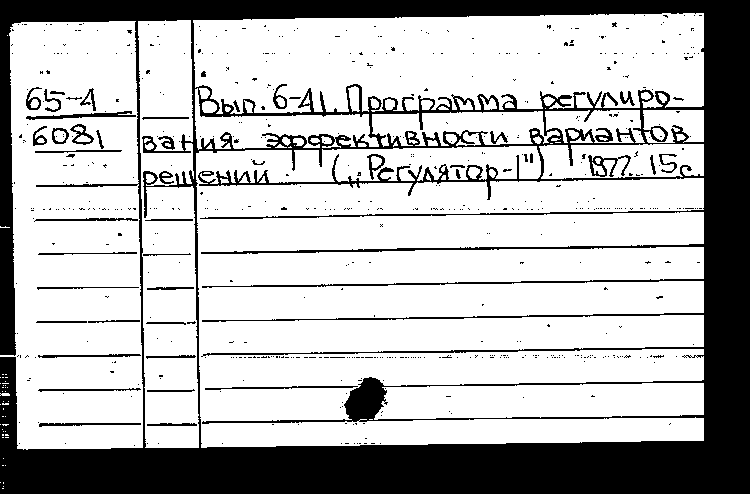 65-4
6081
Вып. 6-41. Программа регулиро-
вания эффективности вариантов
решений („Регулятор-1"). 1977. 15с.